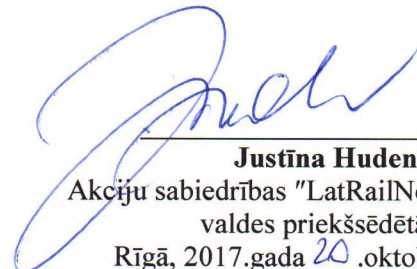 Justīna Huden
Akciju sabiedrības "LatRailNe
valdes priekšsēdēta
Rīgā, 2017.gada 20 .okto